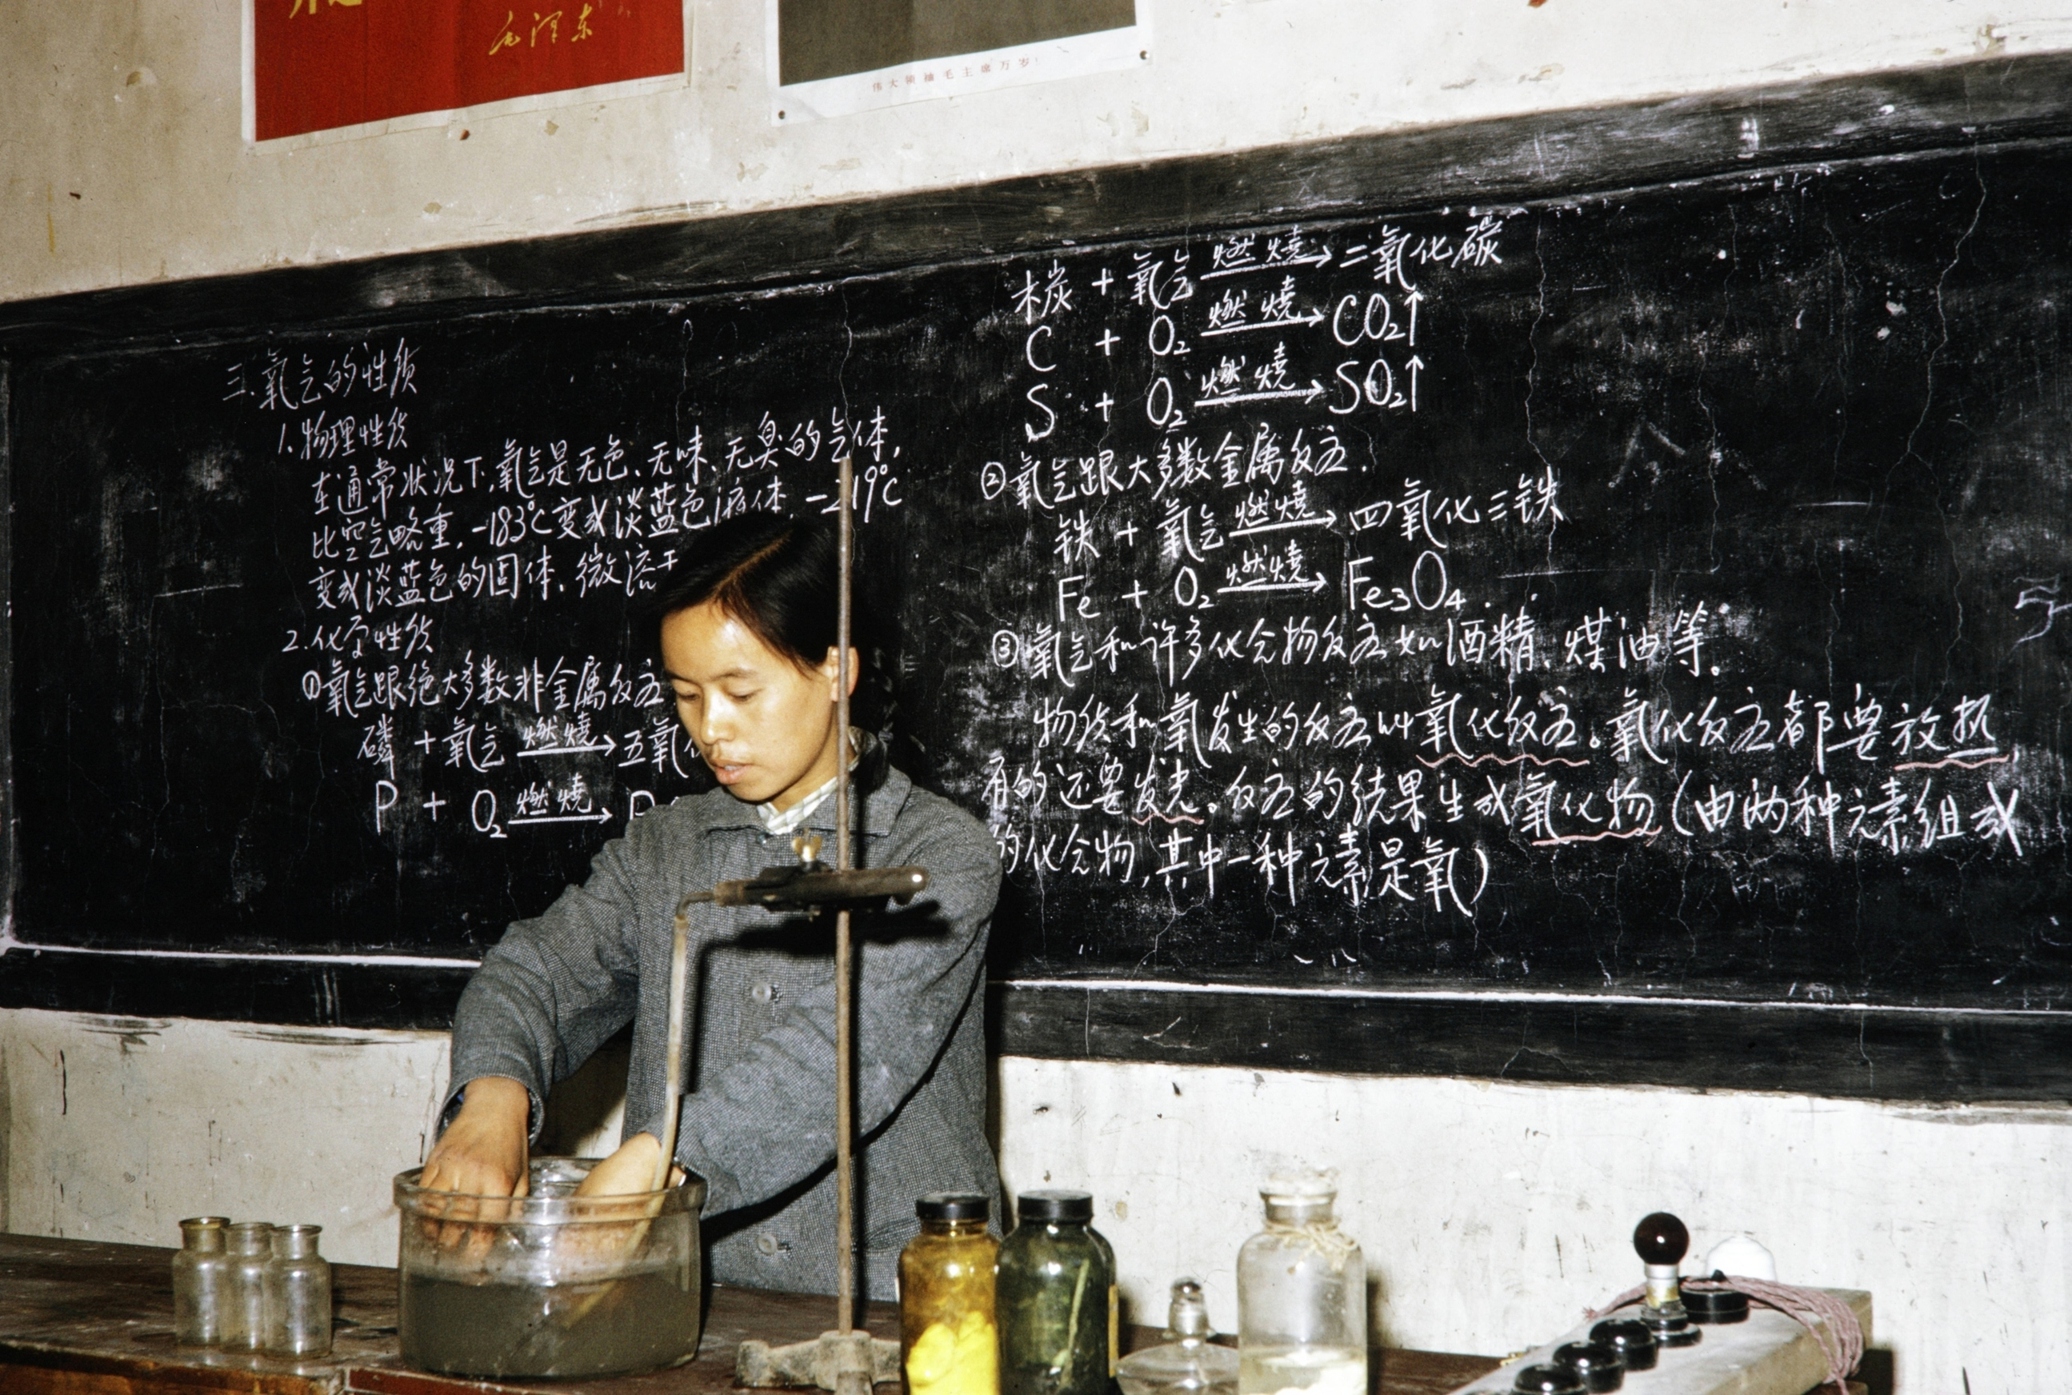 毛泽东
伟大领袖毛主席万岁!
三.氧气的性质
1.物理性质
在通常状况下,氧气是无色、无味、无臭的气体,
比空气略重,-183℃变成淡蓝色液体,-219℃
变成淡蓝色的固体,微溶于
2.化学性质
①氧气跟绝大多数非金属反应
磷 + 氧气 燃烧→ 五氧化
P + O₂ 燃烧→ P
木炭 + 氧气 燃烧→ 二氧化碳
C + O₂ 燃烧→ CO₂↑
S + O₂ 燃烧→ SO₂↑
②氧气跟大多数金属反应.
铁 + 氧气 燃烧→ 四氧化三铁
Fe + O₂ 燃烧→ Fe₃O₄.
③氧气和许多化合物反应如酒精、煤油等。
物质和氧发生的反应叫氧化反应。氧化反应都要放热
有的还要发光。反应的结果生成氧化物(由两种元素组成
的化合物,其中一种元素是氧)